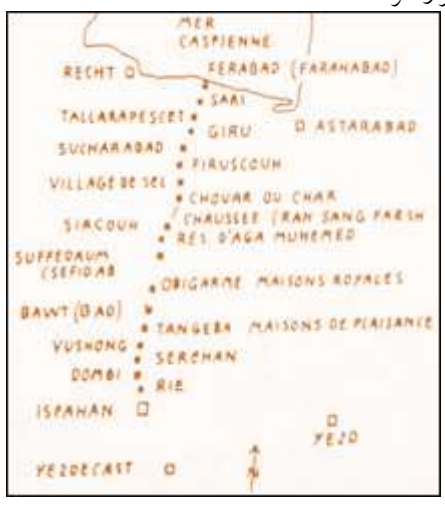 MER
CASPIENNE
RECHT
FERABAD (FARAHABAD)
SARI
TALLARAPESCET
GIRU
ASTARABAD
SUCHARABAD
FIRUSCOUH
VILLAGE DE SEL
CHOUAR OU CHAR
SIACOUH
CHAUSSEE (RAH SANG FARSH
RES D'AGA MUHEMED
SUFFEDAUM
(SEFIDAB
OBIGARME MAISONS ROYALES
BAWT (BAD)
TANGEBA MAISONS DE PLAISANCE
VUSHONG
SEREHAN
DOMBI
RIE
ISPAHAN
YEZD
YEZDECAST
N